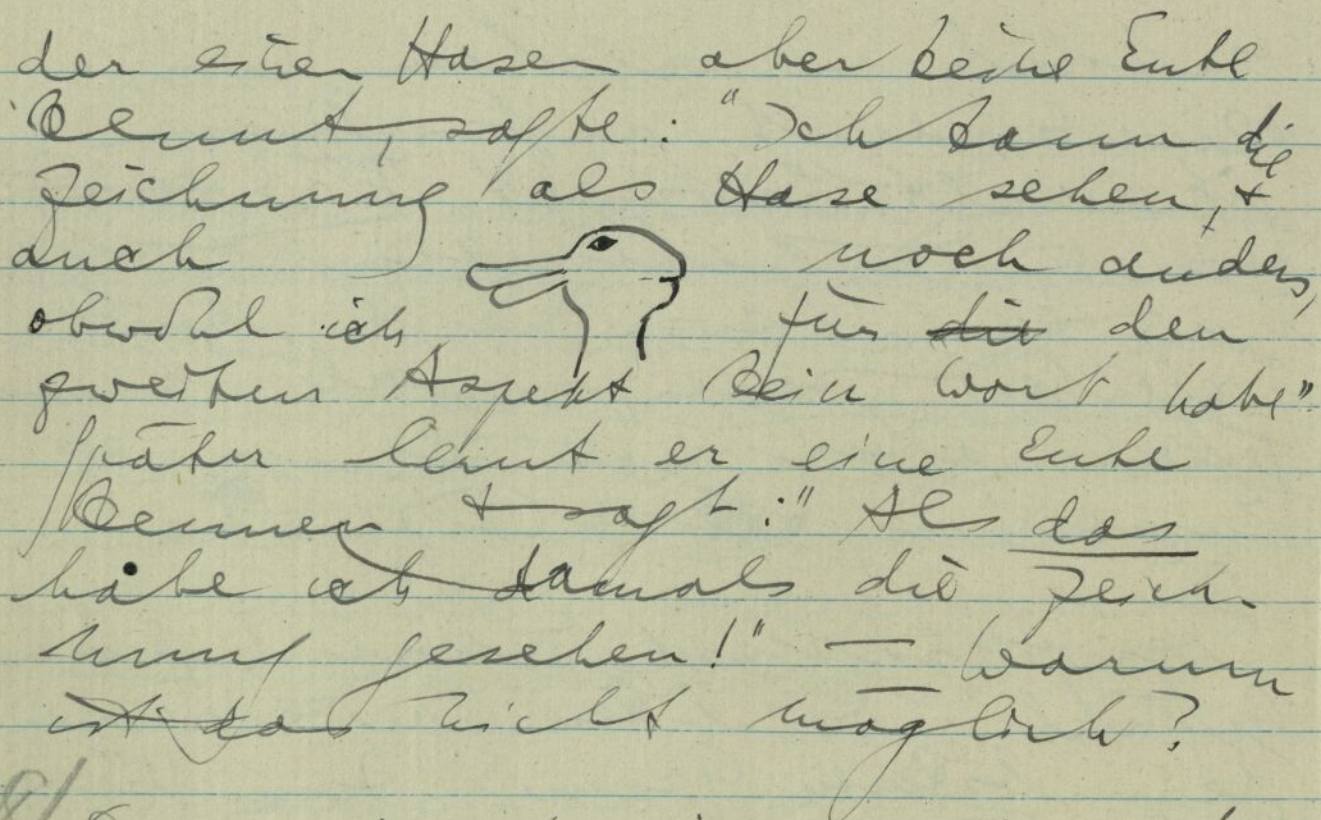 der einen Hasen aber keine Ente
kennt, sagte: "Ich kann die
Zeichnung als Hase sehen, +
auch noch anders,
obwohl ich für die den
zweiten Aspekt kein Wort habe"
Später lernt er eine Ente
kennen + sagt: "Als das
habe ich damals die Zeich-
nung gesehen!" — Warum
ist das nicht möglich?